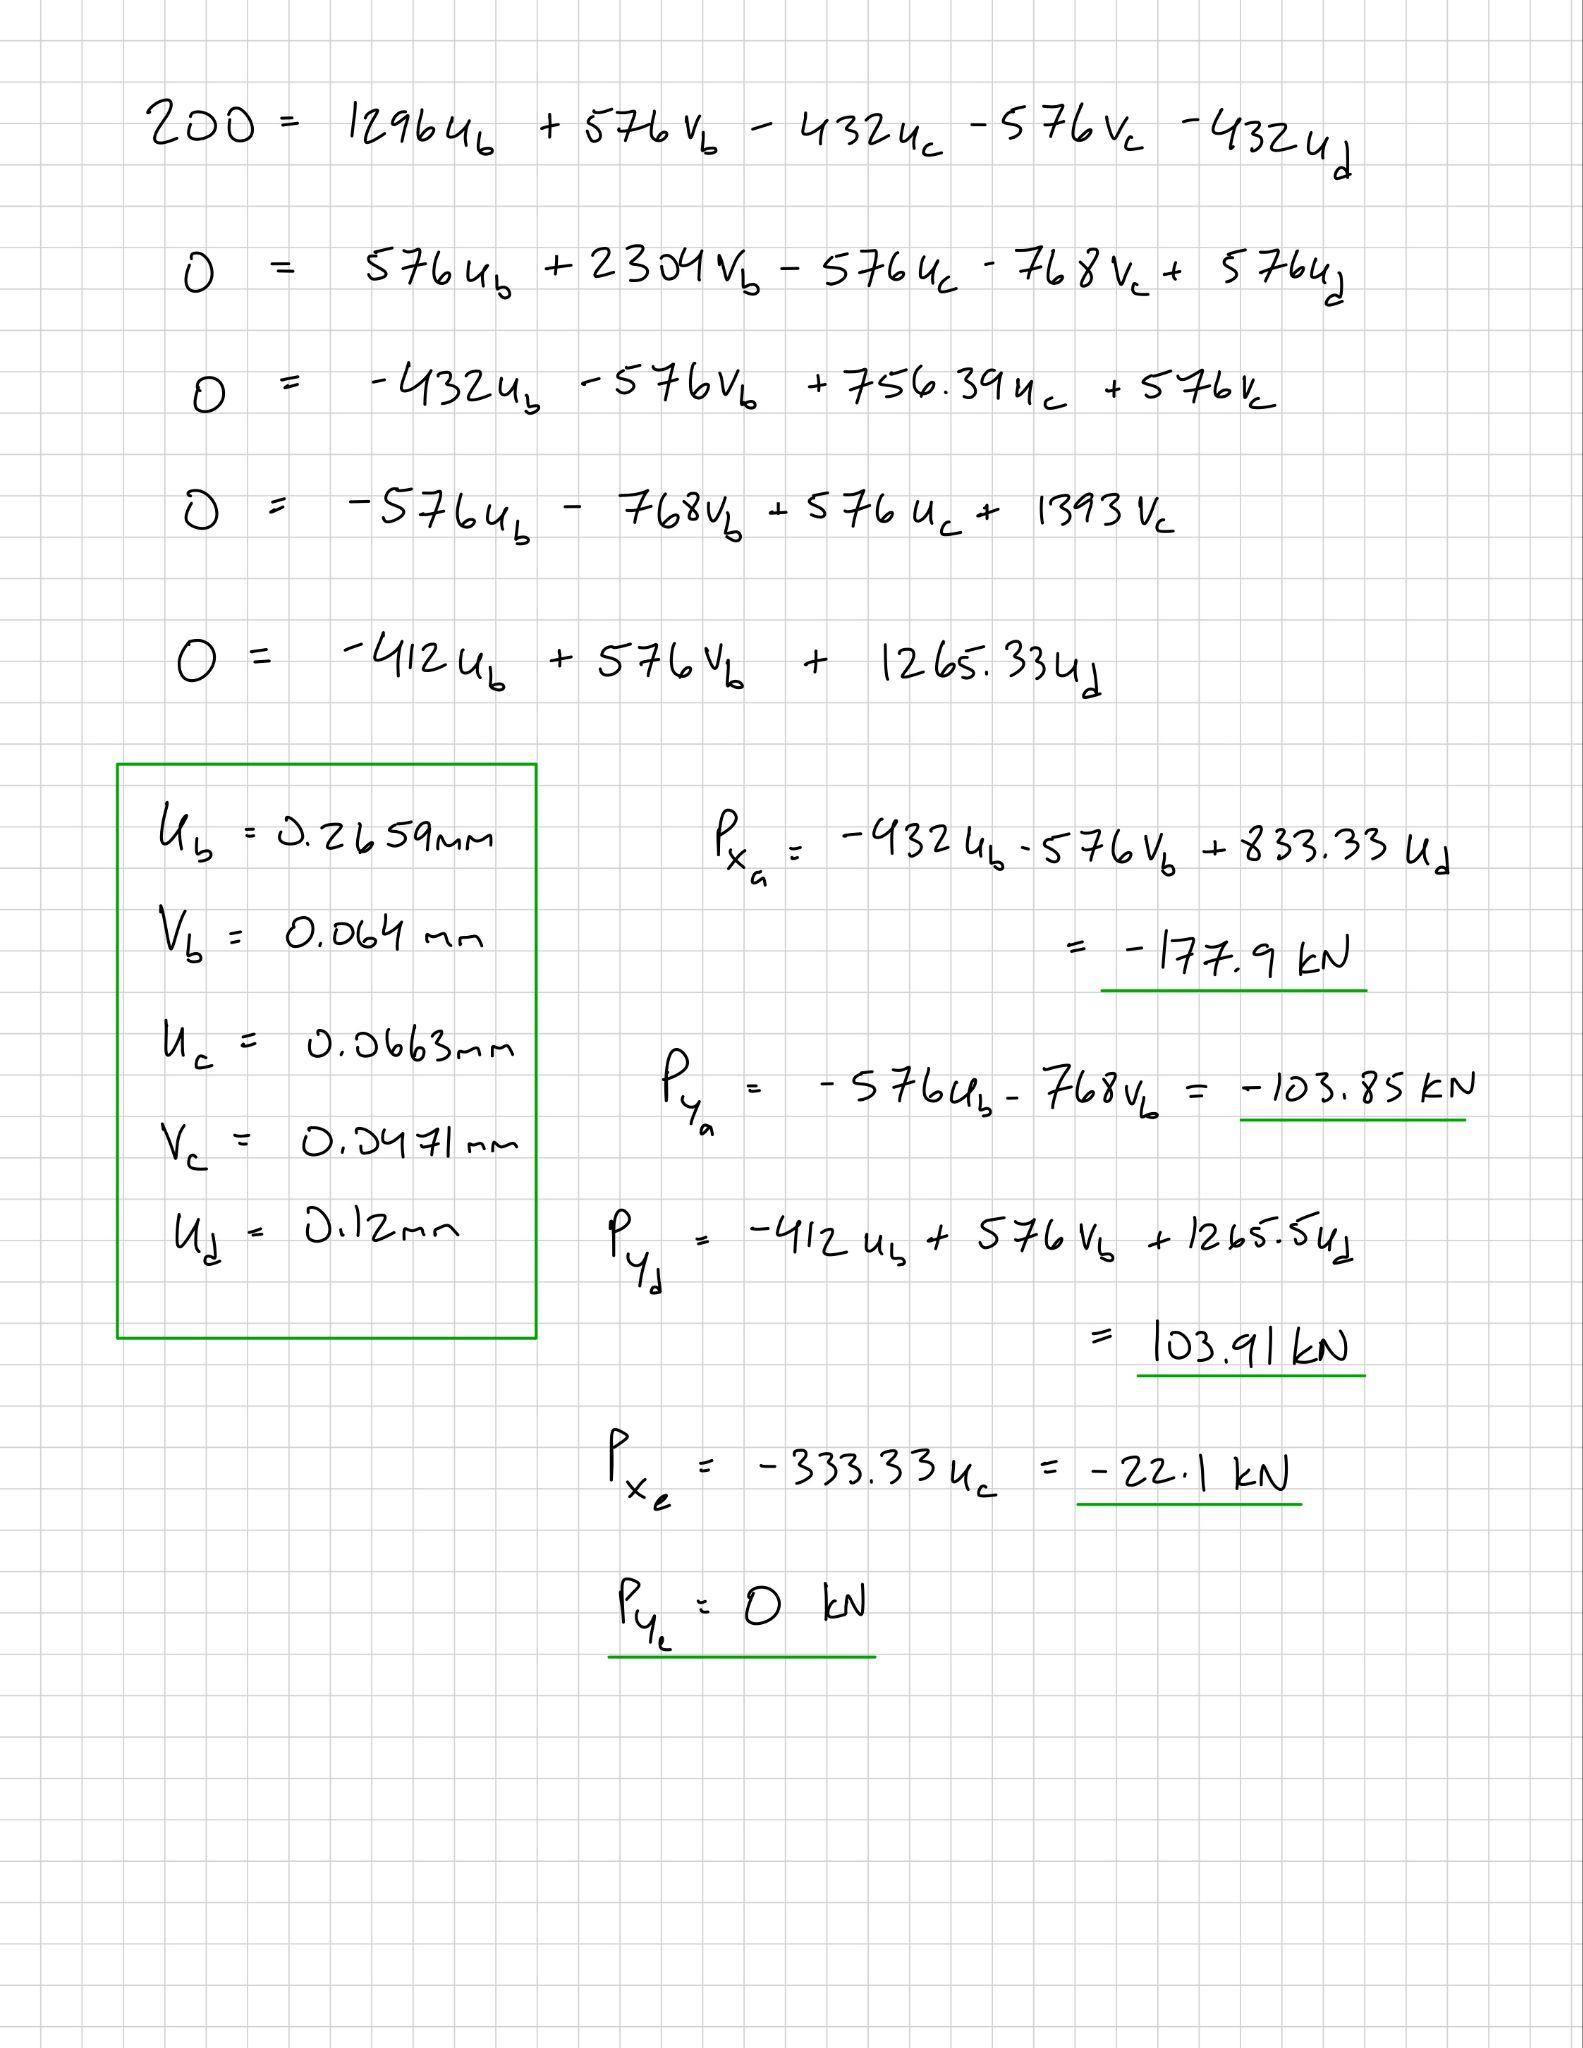 200 = 1296u_b + 576v_b - 432u_c - 576v_c - 432u_d
0 = 576u_b + 2304v_b - 576u_c - 768v_c + 576u_d
0 = -432u_b - 576v_b + 756.39u_c + 576v_c
0 = -576u_b - 768v_b + 576u_c + 1393v_c
0 = -412u_b + 576v_b + 1265.33u_d
u_b = 0.2659mm
v_b = 0.064 mm
u_c = 0.0663mm
v_c = 0.0471mm
u_d = 0.12mm
P_x_a = -432u_b - 576v_b + 833.33u_d
= -177.9 kN
P_y_a = -576u_b - 768v_b = -103.85 kN
P_y_d = -412u_b + 576v_b + 1265.5u_d
= 103.91 kN
P_x_e = -333.33u_c = -22.1 kN
P_y_e = 0 kN